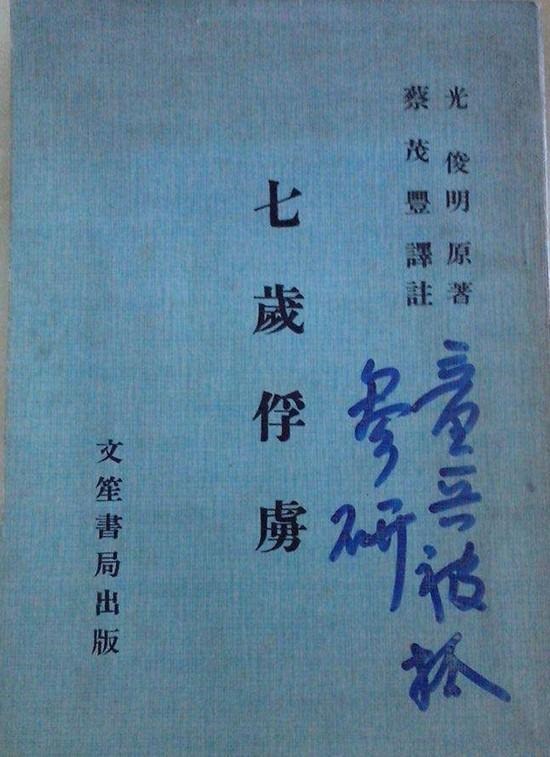 光俊明原著
蔡茂豐譯註
七歲俘虜
文笙書局出版
童兵被
參研